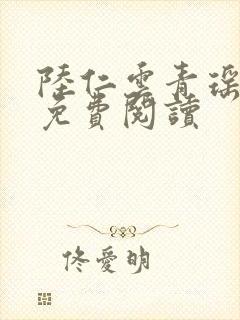 陸仁雲青瑶
免費閱讀
佟愛明